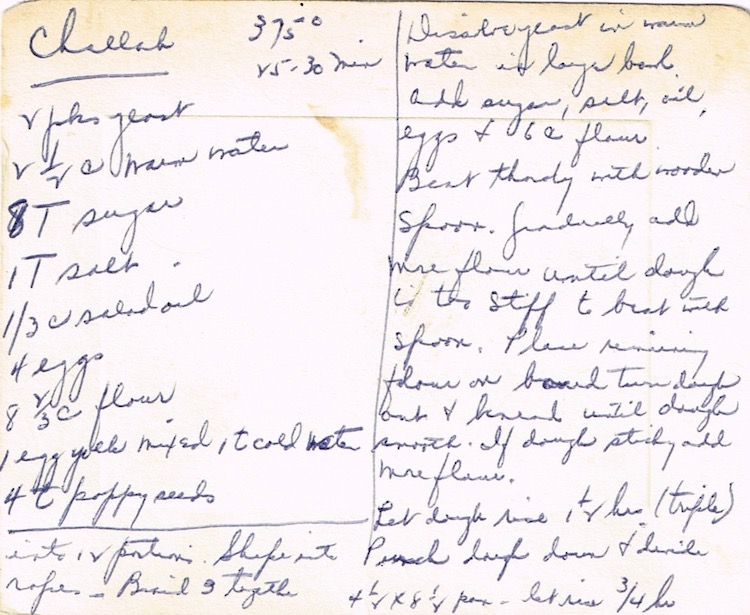 Challah 375°
25-30 min
2 pkgs yeast
2 1/2 c warm water
8 T sugar
1 T salt.
1/3 c salad oil
4 eggs
8 2/3 c flour
1 egg yolk mixed 1 t cold water
4 t poppy seeds
Dissolve yeast in warm
water in large bowl.
Add sugar, salt, oil,
eggs & 6 c flour.
Beat thordy with wooden
spoon. Gradually add
more flour until dough
is too stiff to beat with
spoon. Place remining
flour on board turn dough
out & knead until dough
smooth. If dough sticky add
more flour.
Let dough rise 1 1/2 hrs. (triple)
Punch dough down & divide
into 12 portions. Shape into
ropes - Braid 3 togethe
4 1/2 x 8 1/2 pan - let rise 3/4 hr